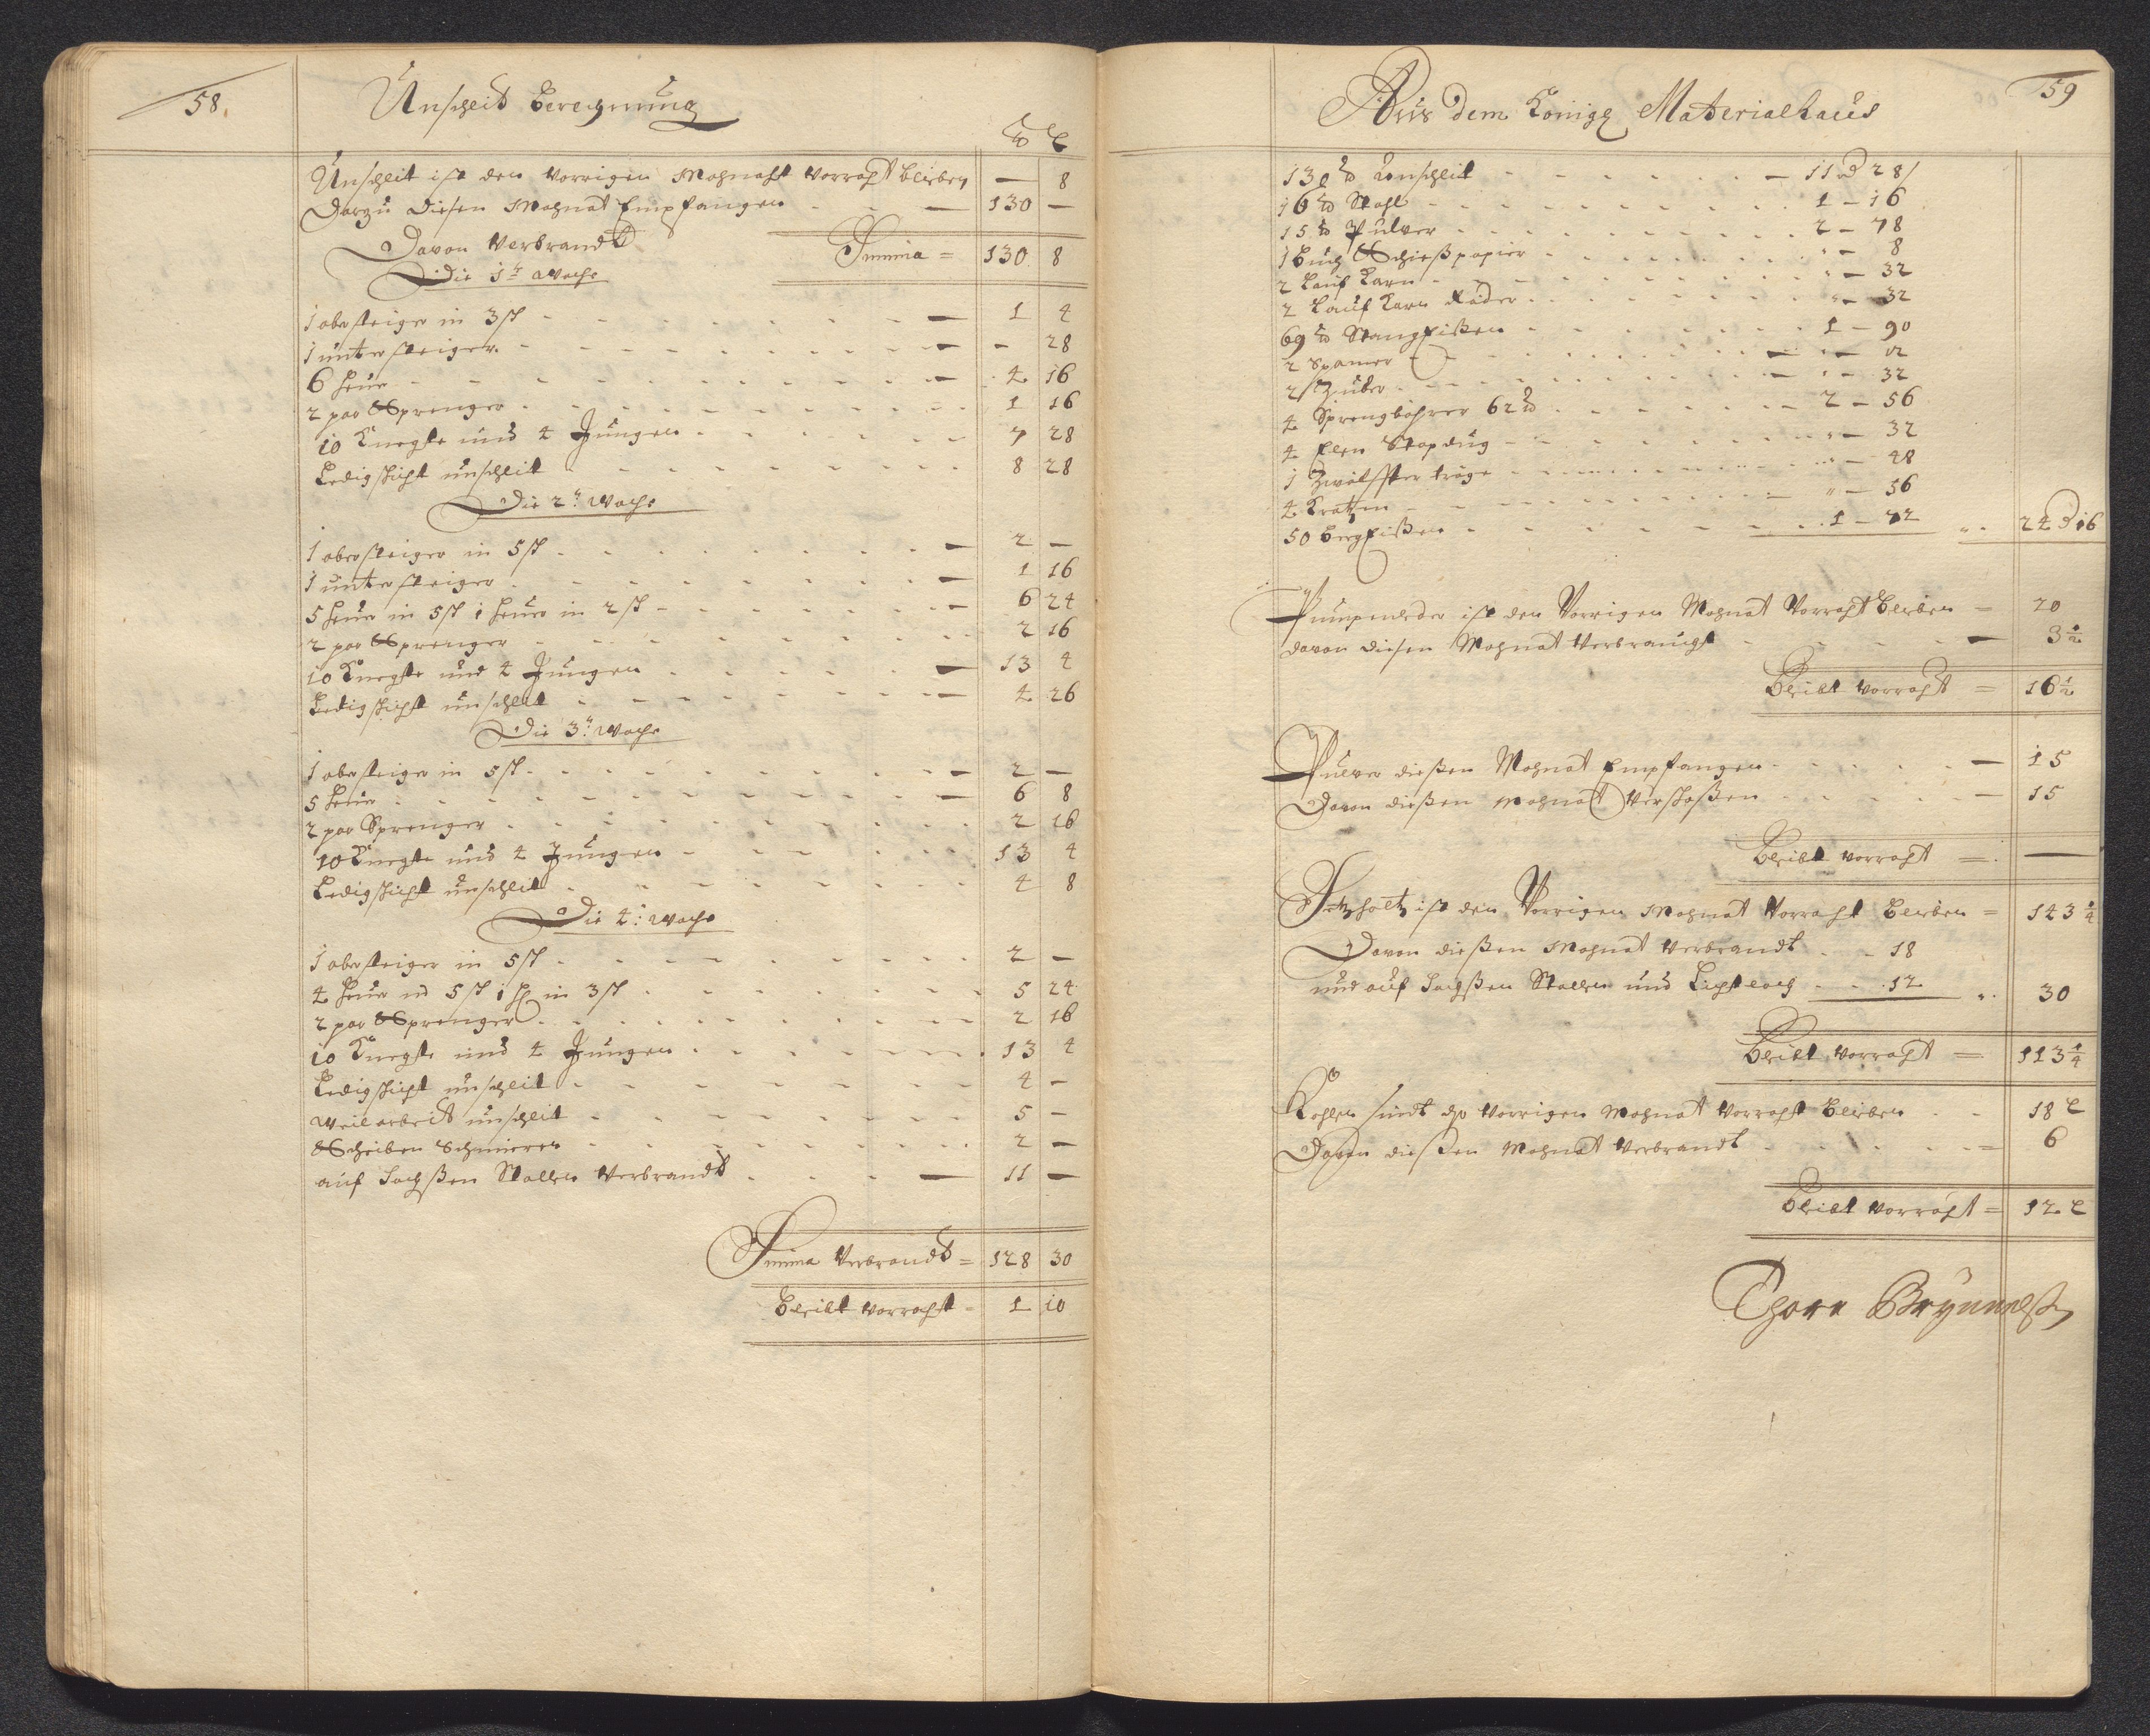 58.
Unschleit berechnung
℔ L
Unschleit ist den vorrigen Mohnaht vorraht blieben — 8
Darzu diesen Mohnat Empfangen — 130 —
Davon Verbrandt Summa = 130 8
Die 1t Woche
1 obersteiger in 3 st — 1 4
1 untersteiger — - 28
6 heur — 4 16
2 par Sprenger 1 16
10 Knegte und 4 Jungen 7 28
Ledigschicht unschleit 8 28
Die 2t Woche
1 obersteiger in 5 st — 2 —
1 untersteiger — 1 16
5 heur in 5 st 1 heur in 2 st — 6 24
2 par Sprenger 2 16
10 Knegte und 4 Jungen — 13 4
Ledigschicht unschleit — 4 26
Die 3t Woche
1 obersteiger in 5 st — 2 —
5 heur — 6 8
2 par Sprenger 2 16
10 Knegte und 4 Jungen 13 4
Ledigschicht unschleit 4 8
Die 4t Woche
1 obersteiger in 5 st 2 —
4 heur in 5 st 1 H in 3 st 5 24
2 par Sprenger 2 16
10 Knegte und 4 Jungen 13 4
Ledigschicht unschleit 4 —
Weilarbeit unschleit 5 —
Scheiben Schmieren 2 —
auf Sachssen Stollen Verbrandt — 11 —
Summa Verbrandt = 128 30
Bleibt vorraht = 1 10
59
Aus dem Königl Materialhaus
130 ℔ Unschleit — 11 d 28
16 ℔ Stahl 1 – 16
15 ℔ Pulver 2 – 78
1 buch Schießpapier " – 8
2 Lauf Karn " – 32
2 Lauf Karn Räder " – 32
69 ℔ Stangeißen 1 – 90
2 Spamer — " – 12
2 Züber — " – 32
4 Sprengbohrer 62 ℔ — 2 – 56
4 Elen Stopdug " – 32
1 Zwölffter tröge " – 48
4 Kratzen " – 56
50 bergeißen 1 – 72 " 24 d 16
Pumpenleder ist den Vorrigen Mohnat Vorraht blieben = 20
davon diesen Mohnat Verbraucht — 3 1/2
Bleibt vorraht = 16 1/2
Pulver dießen Mohnat Empfangen — 15
Davon dießen Mohnat Verschoßen — 15
Bleibt vorraht = —
Setzholtz ist den Vorrigen Mohnat Vorraht blieben = 143 1/4
Davon dießen Mohnat Verbrandt 18
und auf Sachßen Stollen und Lichtloch 12 " 30
Bleibt vorraht = 113 1/4
Kohlen sindt vorrigen Mohnat vorraht blieben 18 L
Davon dießen Mohnat Verbrandt = 6
Bleibt vorraht = 12 L
Thore Brÿnnelß